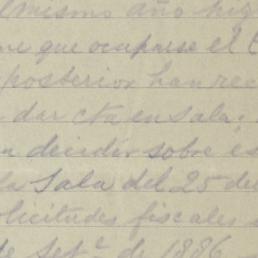 el mismo año hi
que ocuparse el
posterior han rec
dar cta en Sala.
decidir sobre es
la Sala del 25 de
licitudes fiscales
de Set.e de 1886